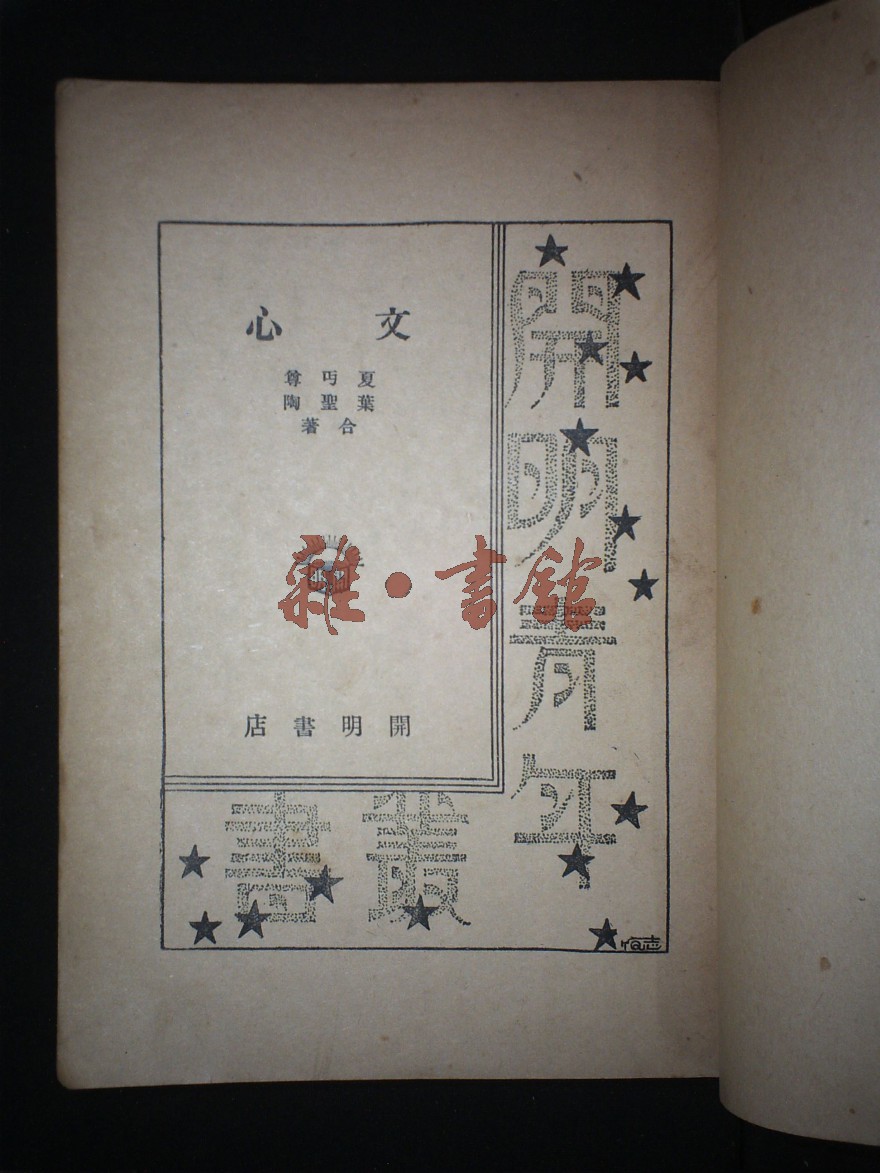 文心
夏丏尊
葉聖陶
合著
開明書店
開明青年
叢書
雜·書館